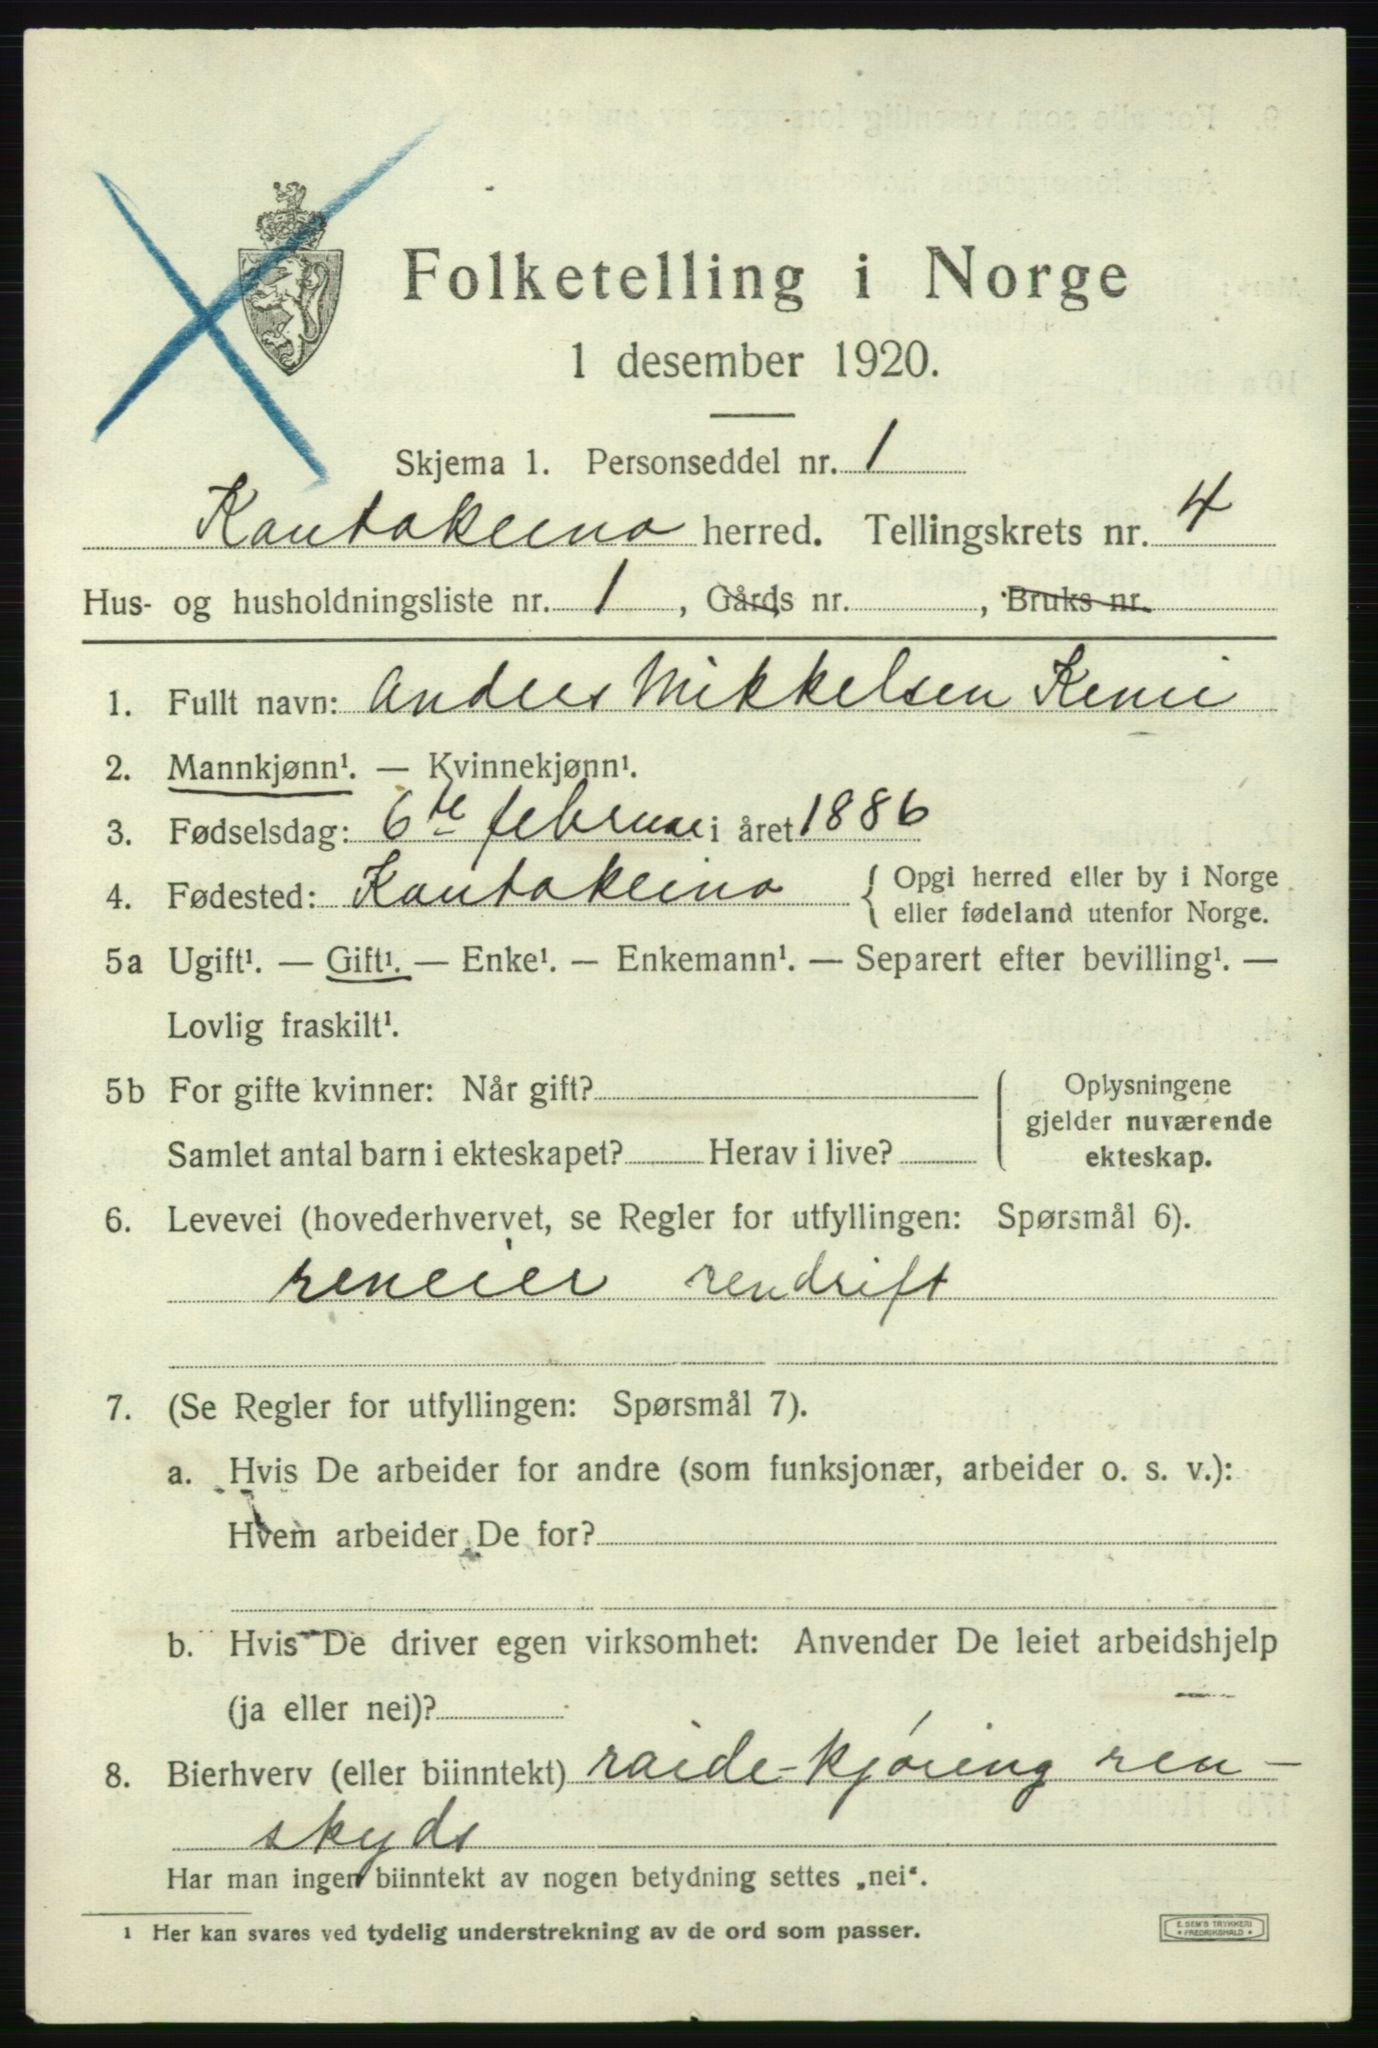 Folketelling i Norge
1 desember 1920.
Skjema 1. Personseddel nr. 1
Kautokeino herred. Tellingskrets nr. 4
Hus- og husholdningsliste nr. 1, Gårds nr. , Bruks nr.
1. Fullt navn: Anders Mikkelsen Kemi
2. Mannkjønn¹. — Kvinnekjønn¹.
3. Fødselsdag: 6te februar i året 1886
4. Fødested: Kautokeino { Opgi herred eller by i Norge
eller fødeland utenfor Norge.
5a Ugift¹. — Gift¹. — Enke¹. — Enkemann¹. — Separert efter bevilling¹. —
Lovlig fraskilt¹.
5b For gifte kvinner: Når gift?
Samlet antal barn i ekteskapet? Herav i live?
Oplysningene
gjelder nuværende
ekteskap.
6. Levevei (hovederhvervet, se Regler for utfyllingen: Spørsmål 6).
reneier rendrift
7. (Se Regler for utfyllingen: Spørsmål 7).
a. Hvis De arbeider for andre (som funksjonær, arbeider o. s. v.):
Hvem arbeider De for?
b. Hvis De driver egen virksomhet: Anvender De leiet arbeidshjelp
(ja eller nei)?
8. Bierhverv (eller biinntekt) raide-kjøring ren-
skyds
Har man ingen biinntekt av nogen betydning settes „nei“.
¹ Her kan svares ved tydelig understrekning av de ord som passer.
E. SEM'S TRYKKERI
* FREDRIKSHALD *